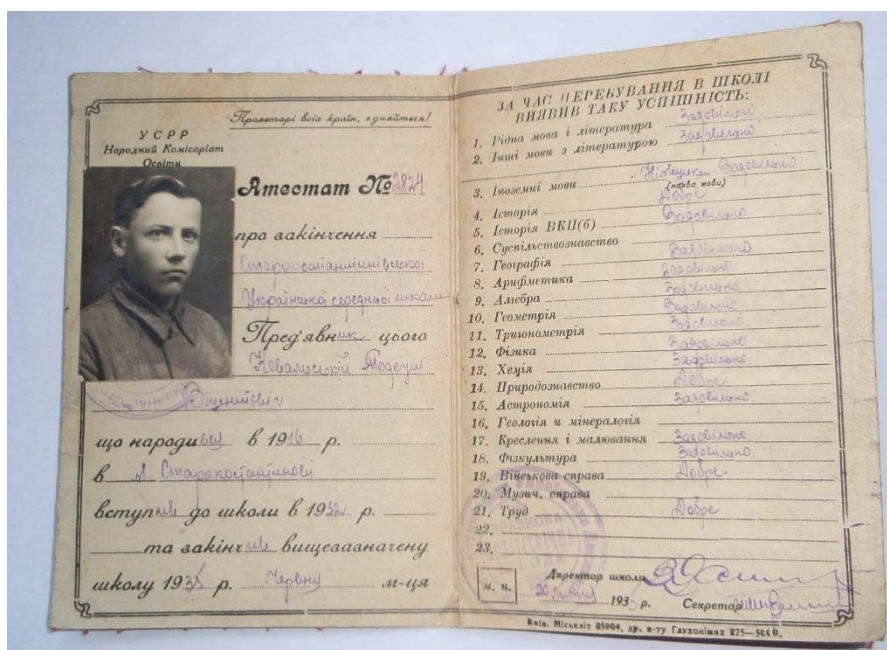 УСРР
Народний Комісаріат
Освіти
Пролетарі всіх країн, єднайтеся!
Атестат № 2824
про закінчення
Старокостянтинівської
Української середньої школи
Пред'явник цього
Ковальський Тадеуш
що народився в 1916 р.
в м. Старокостантинові
вступив до школи в 1932 р.
та закінчив вищезазначену
школу 1935 р. Червня м-ця
ЗА ЧАС ПЕРЕБУВАННЯ В ШКОЛІ
ВИЯВИВ ТАКУ УСПІШНІСТЬ:
1. Рідна мова і література Задовільно
2. Інші мови з літературою Задовільно
3. Іноземні мови Німецька Задовільно
(назва мови)
4. Історія Добре
5. Історія ВКП(б) Задовільно
6. Суспільствознавство
7. Географія Задовільно
8. Арифметика Задовільно
9. Алгебра Задовільно
10. Геометрія Задовільно
11. Тригонометрія Задовільно
12. Фізика Задовільно
13. Хемія Задовільно
14. Природознавство Добре
15. Астрономія Задовільно
16. Геологія и мінералогія
17. Креслення і малювання Задовільно
18. Фізкультура Задовільно
19. Військова справа Добре
20. Музич. справа
21. Труд Добре
22.
23.
Директор школи
М. П.
20 193 р. Секретар
Київ. Міськліт 05904, др. в-ту Глухонімих 275—5000.